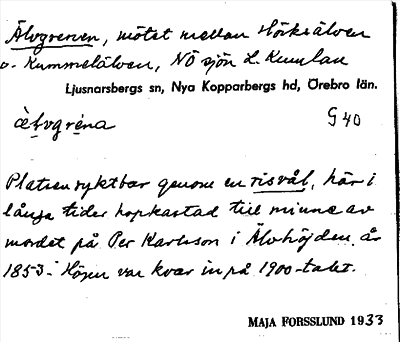 Älvgrenen, mötet mellan Hörksälven
o. Rummelälven, NÖ sjön L. Kumlan
Ljusnarsbergs sn, Nya Kopparbergs hd, Örebro län.
ä̀lvgréna G 40
Platsen ryktbar genom en risvål, här i
långa tider hopkastad till minne av
mordet på Per Karlsson i Älvhöjden år
1853. Högen var kvar in på 1900-talet.
MAJA FORSSLUND 1933